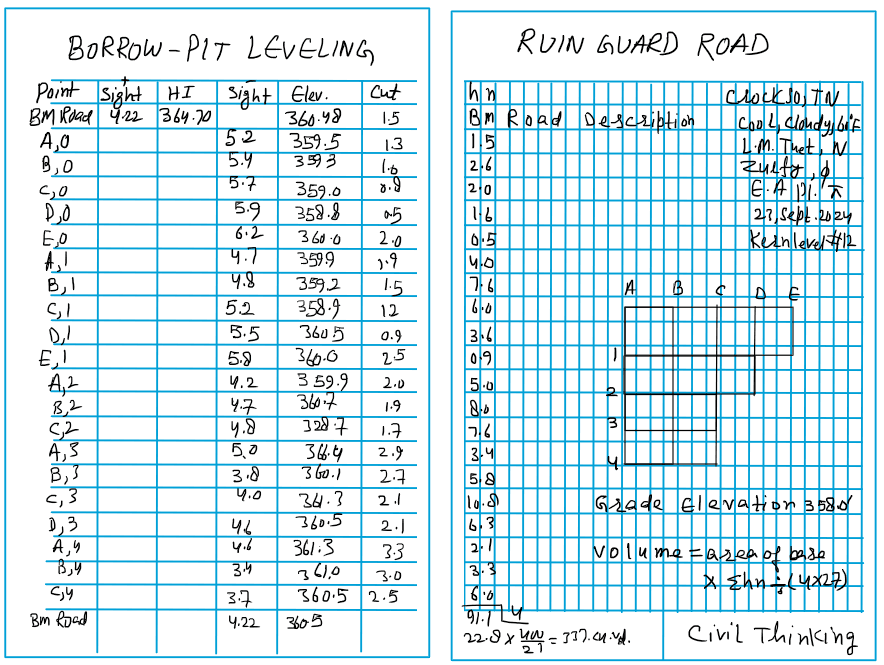 BORROW-PIT LEVELING
Point + Sight HI - Sight Elev. Cut
BM Road 4.22 364.70 360.48 1.5
A,0 5.2 359.5 1.3
B,0 5.4 359.3 1.0
C,0 5.7 359.0 0.8
D,0 5.9 358.8 0.5
E,0 6.2 360.0 2.0
A,1 4.7 3599 1.9
B,1 4.8 359.2 1.5
C,1 5.2 358.9 12
D,1 5.5 3605 0.9
E,1 5.8 360.0 2.5
A,2 4.2 359.9 2.0
B,2 4.7 360.7 1.9
C,2 4.8 328.7 1.7
A,3 5.0 366.4 2.9
B,3 3.8 360.1 2.7
C,3 4.0 361.3 2.1
D,3 4.6 360.5 2.1
A,4 4.6 361.3 3.3
B,4 3.4 361.0 3.0
C,4 3.7 360.5 2.5
Bm Road 4.22 360.5
RUIN GUARD ROAD
hn
Bm Road Description
1.5
2.6
2.0
1.6
0.5
4.0
7.6
6.0
3.6
0.9
5.0
8.0
7.6
3.4
5.8
10.8
6.3
2.1
3.3
6.0
91.1 4
22.8 ×
Cool, Cloudy,
L.M.
E.A
23, Sept. 2024
Kern level #12
A B C D E
1
2
3
4
Grade Elevation 358.0'
Volume = area of base
× Σhn
(4×27)
Civil Thinking